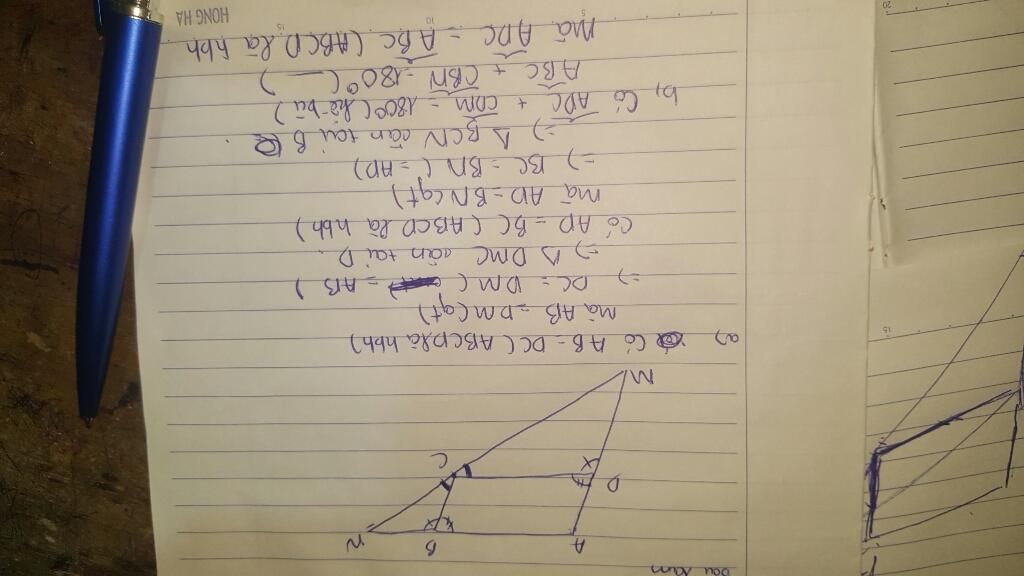 Bài làm
A B N
D C
M
a) Có AB = DC (ABCD là hbh)
mà AB = DM (gt)
=) DC = DM ( = AB )
=) Δ DMC cân tại D.
Có AD = BC ( ABCD là hbh )
mà AD = BN (gt)
=) BC = BN ( = AD)
=) Δ BCN cân tại B
b, Có ADC + CDM = 180° (kề bù)
ABC + CBN = 180° ( — )
Mà ADC = ABC ( ABCD là hbh
5 10 15
HONG HA
20
15